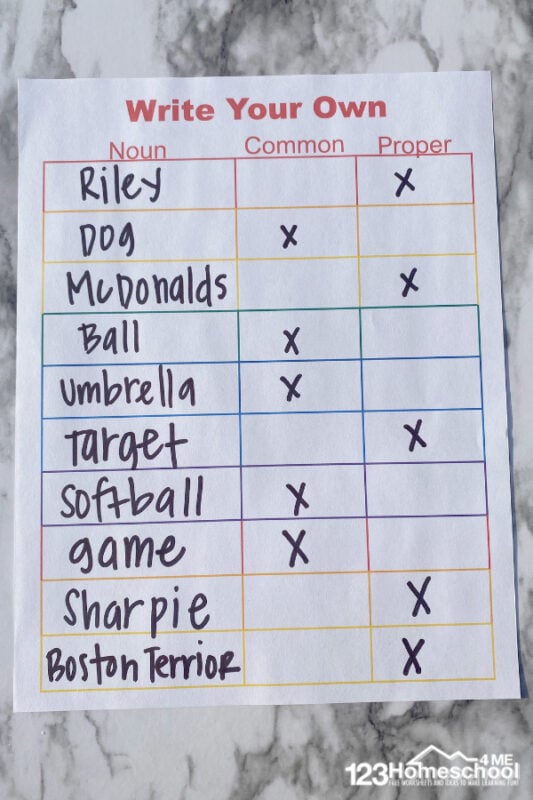 Write Your Own
Noun Common Proper
Riley X
Dog X
McDonalds X
Ball X
Umbrella X
Target X
Softball X
game X
Sharpie X
Boston Terrior X
4 ME
123Homeschool
FREE WORKSHEETS AND IDEAS TO MAKE LEARNING FUN!